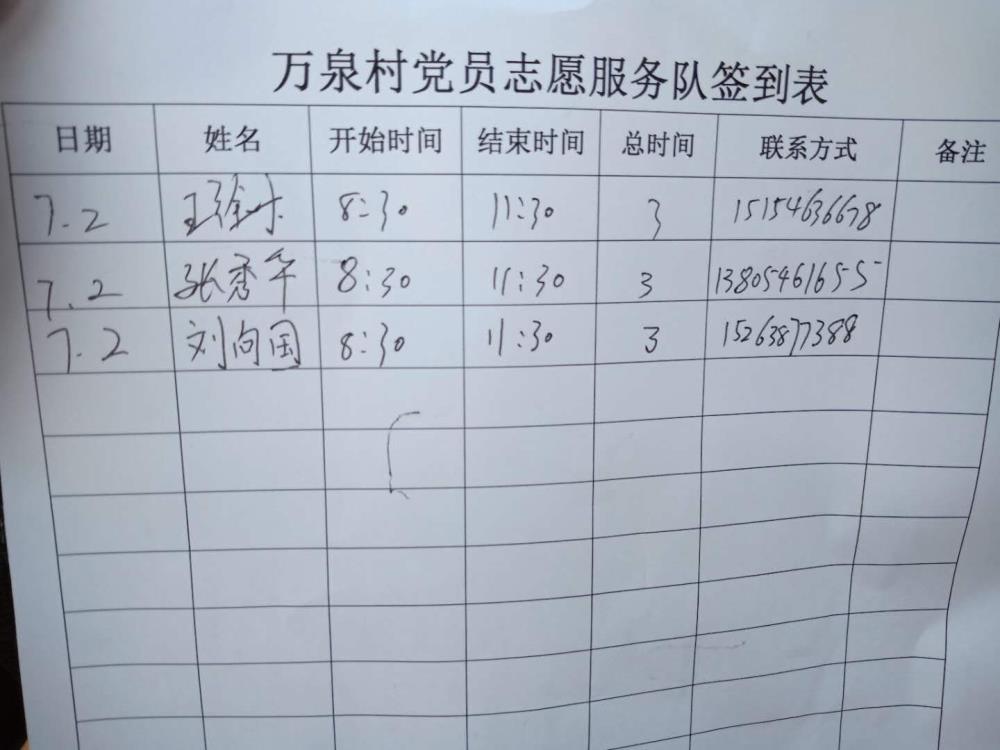 万泉村党员志愿服务队签到表
日期 姓名 开始时间 结束时间 总时间 联系方式 备注
7.2 8:30 11:30 3 15154636678
7.2 张秀华 8:30 11:30 3 13805461655
7.2 刘向国 8:30 11:30 3 15263877388